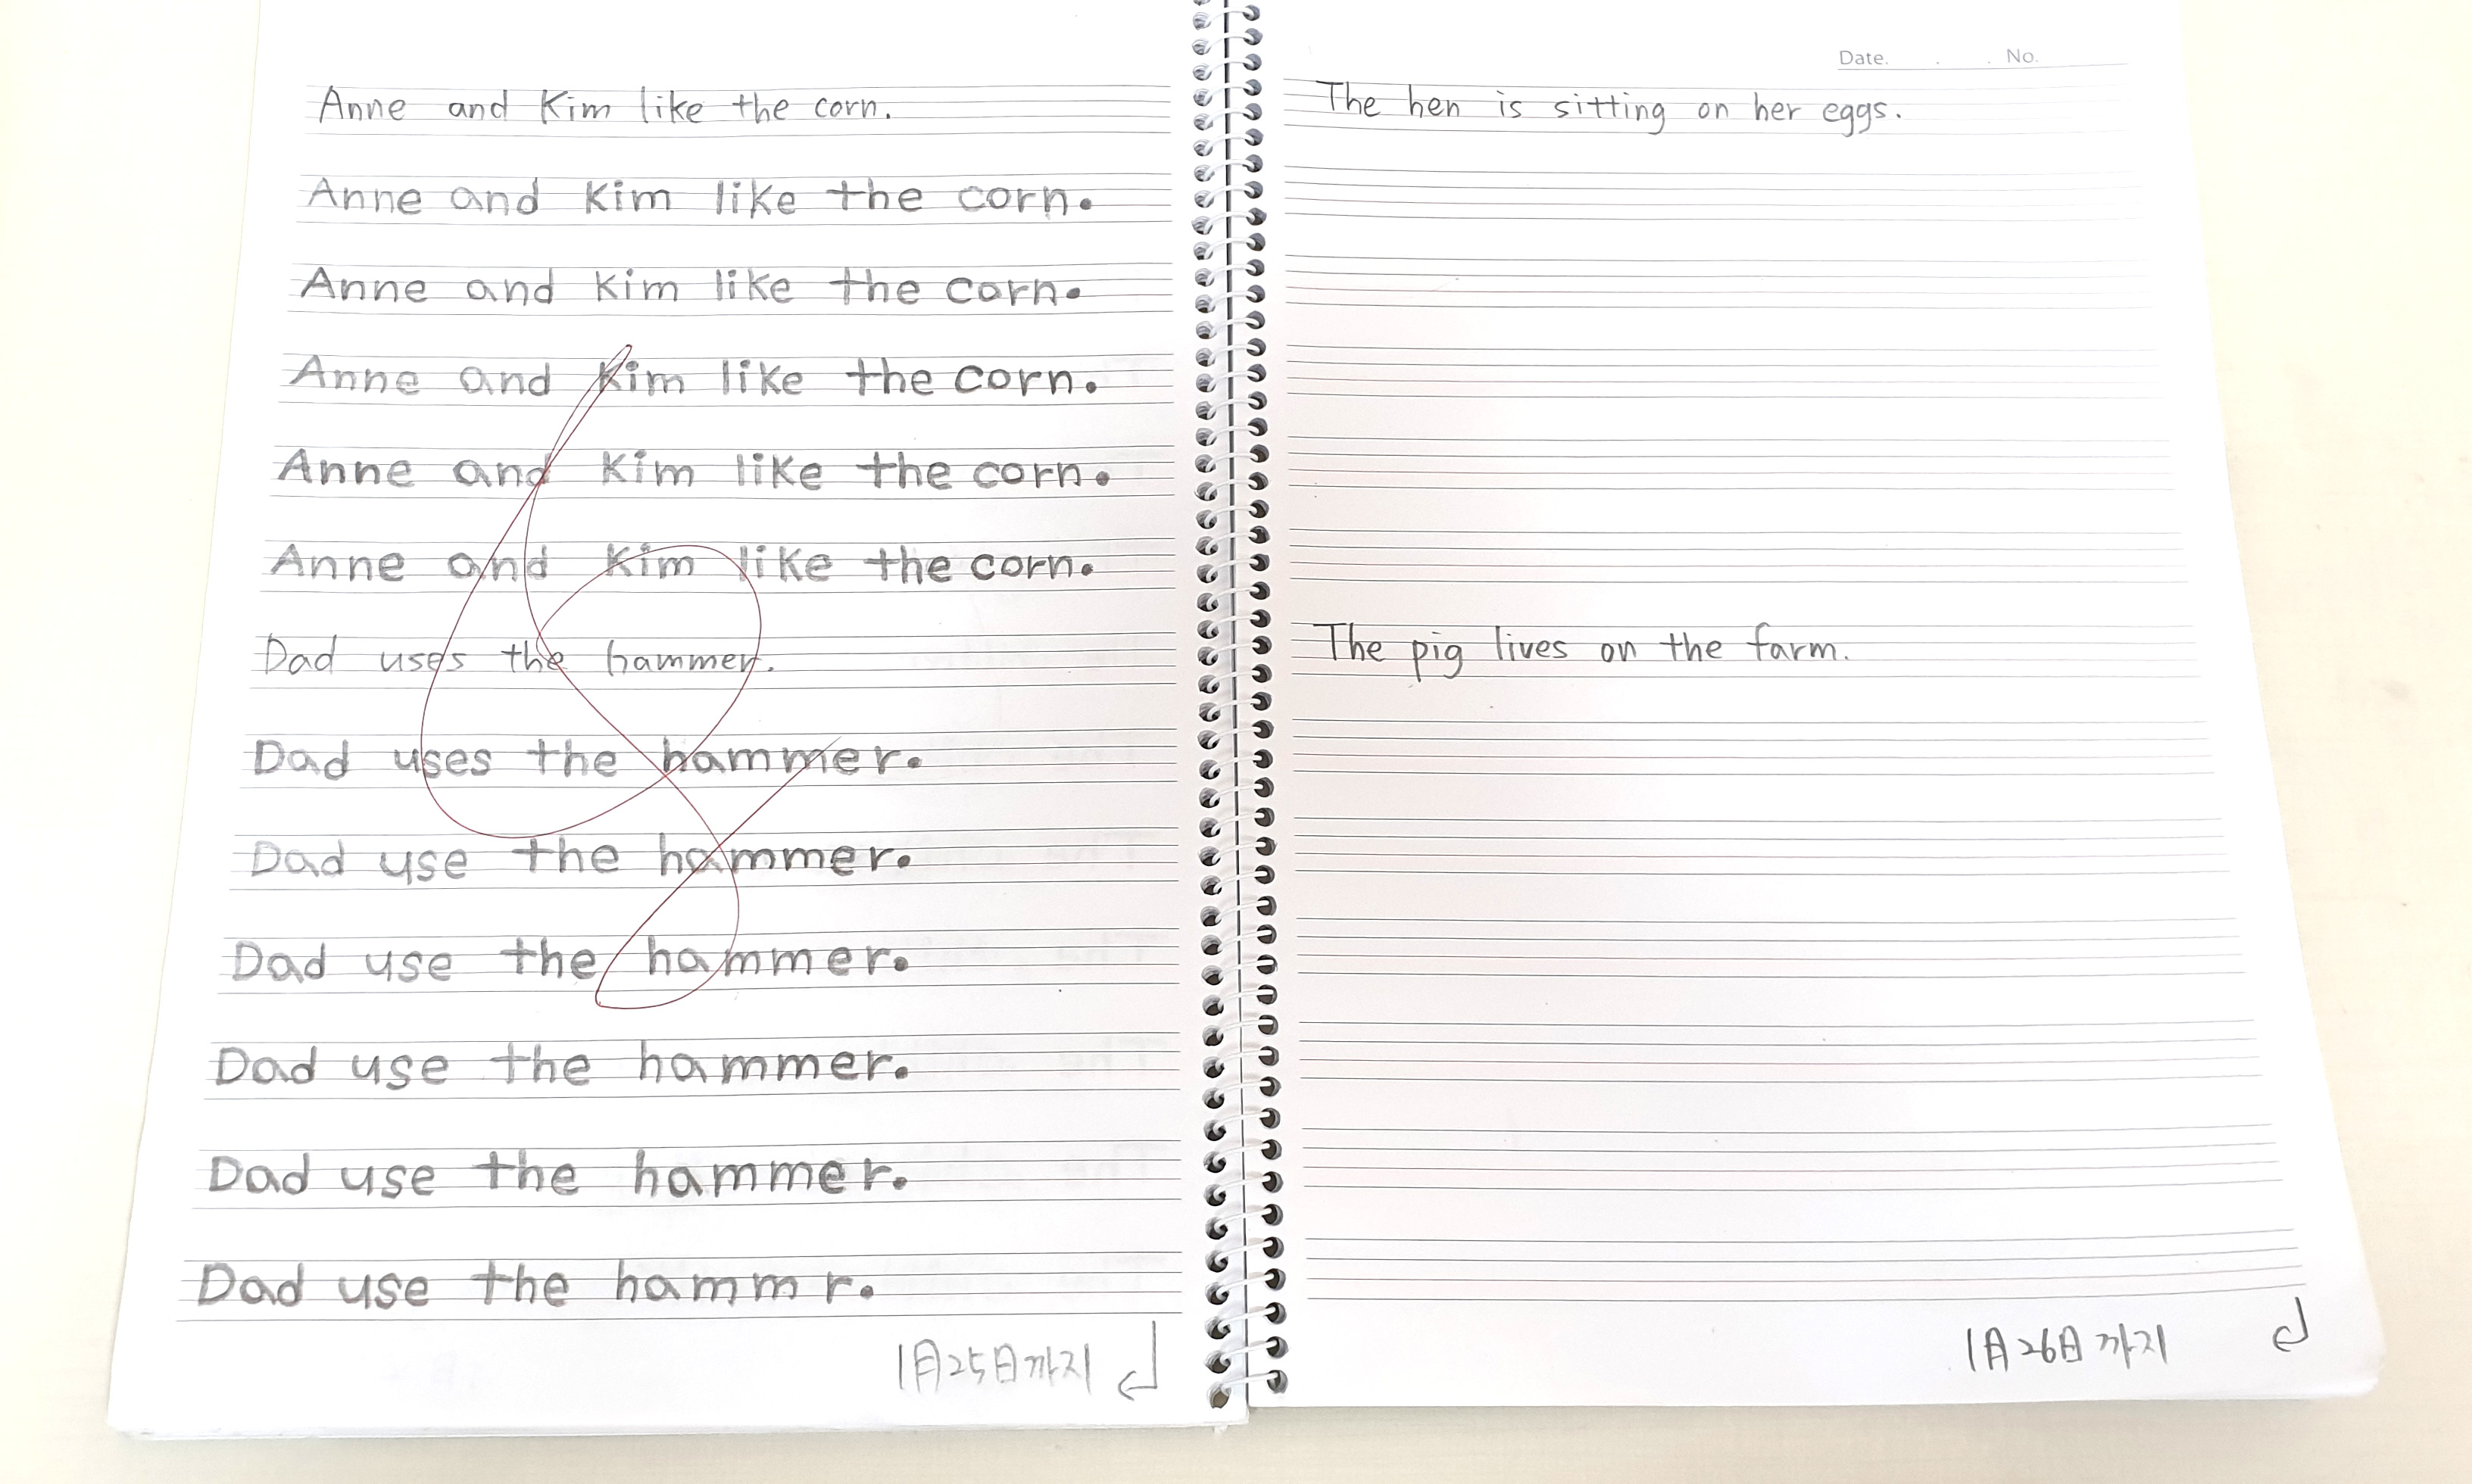 Anne and Kim like the corn.
Anne and Kim like the corn.
Anne and Kim like the corn.
Anne and Kim like the corn.
Anne and Kim like the corn.
Anne and Kim like the corn.
Dad uses the hammer.
Dad uses the hammer.
Dad use the hammer.
Dad use the hammer.
Dad use the hammer.
Dad use the hammer.
Dad use the hamm r.
1月25日까지
Date. . . No.
The hen is sitting on her eggs.
The pig lives on the farm.
1月26日까지